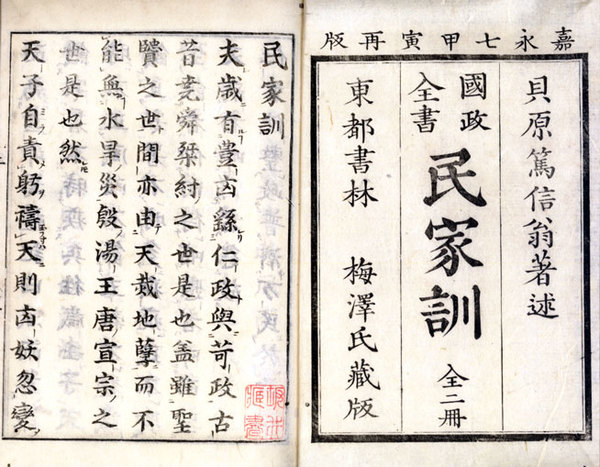 嘉永七甲寅再版
貝原篤信翁著述
國政
全書
民家訓
全二冊
東都書林 梅澤氏藏版
民家訓
夫歳有豊凶繇仁政與苛政古
昔堯舜桀紂之世是也盖雖聖
賢之世間亦由天烖地孽而不
能無水旱災殷湯王唐宣宗之
世是也然
天子自責躬禱天則凶妖忽變